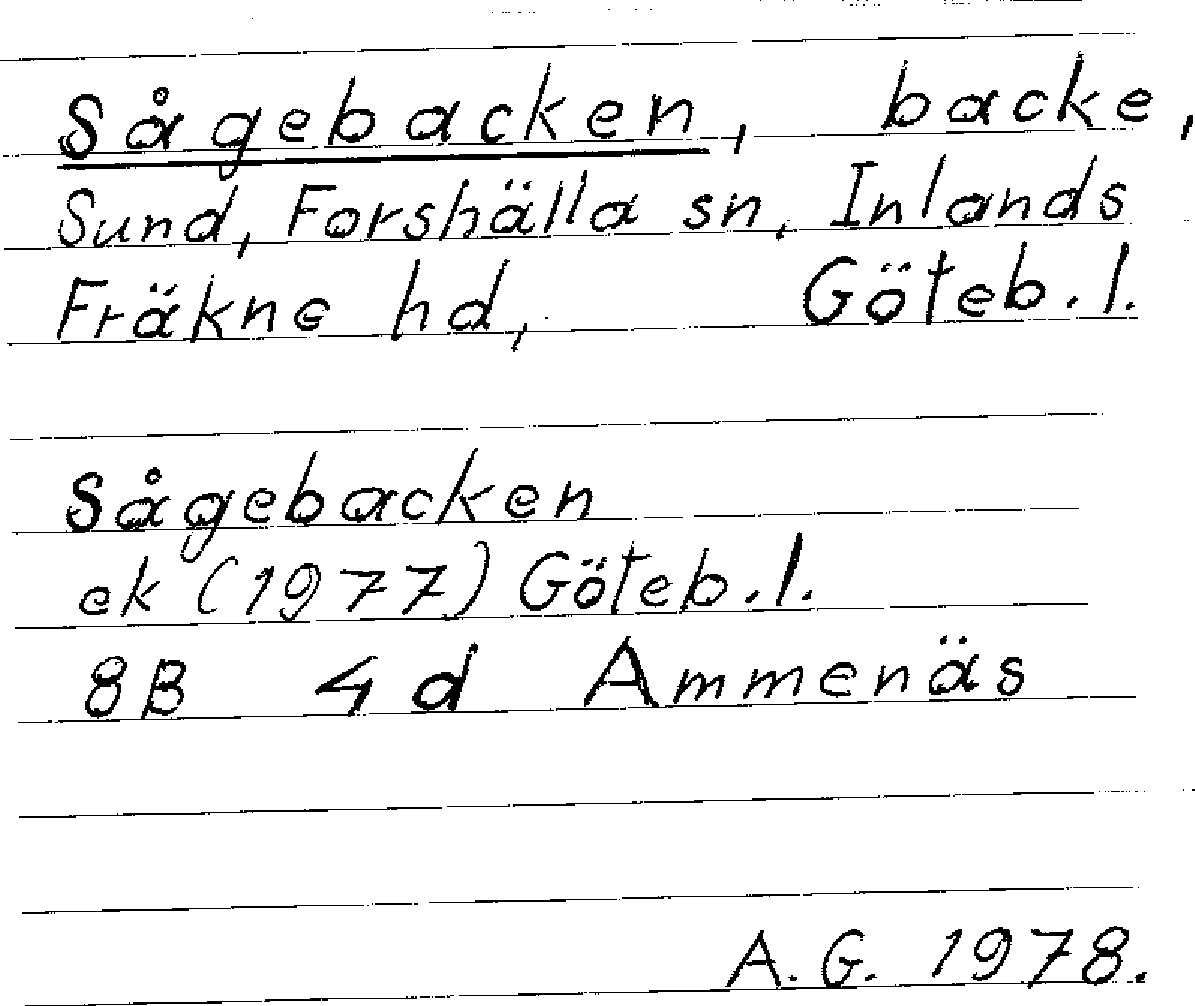 Sågebacken, backe,
Sund, Forshälla sn, Inlands
Fräkne hd, Göteb. l.
Sågebacken
ek (1977) Göteb. l.
8B 4d Ammenäs
A. G. 1978.